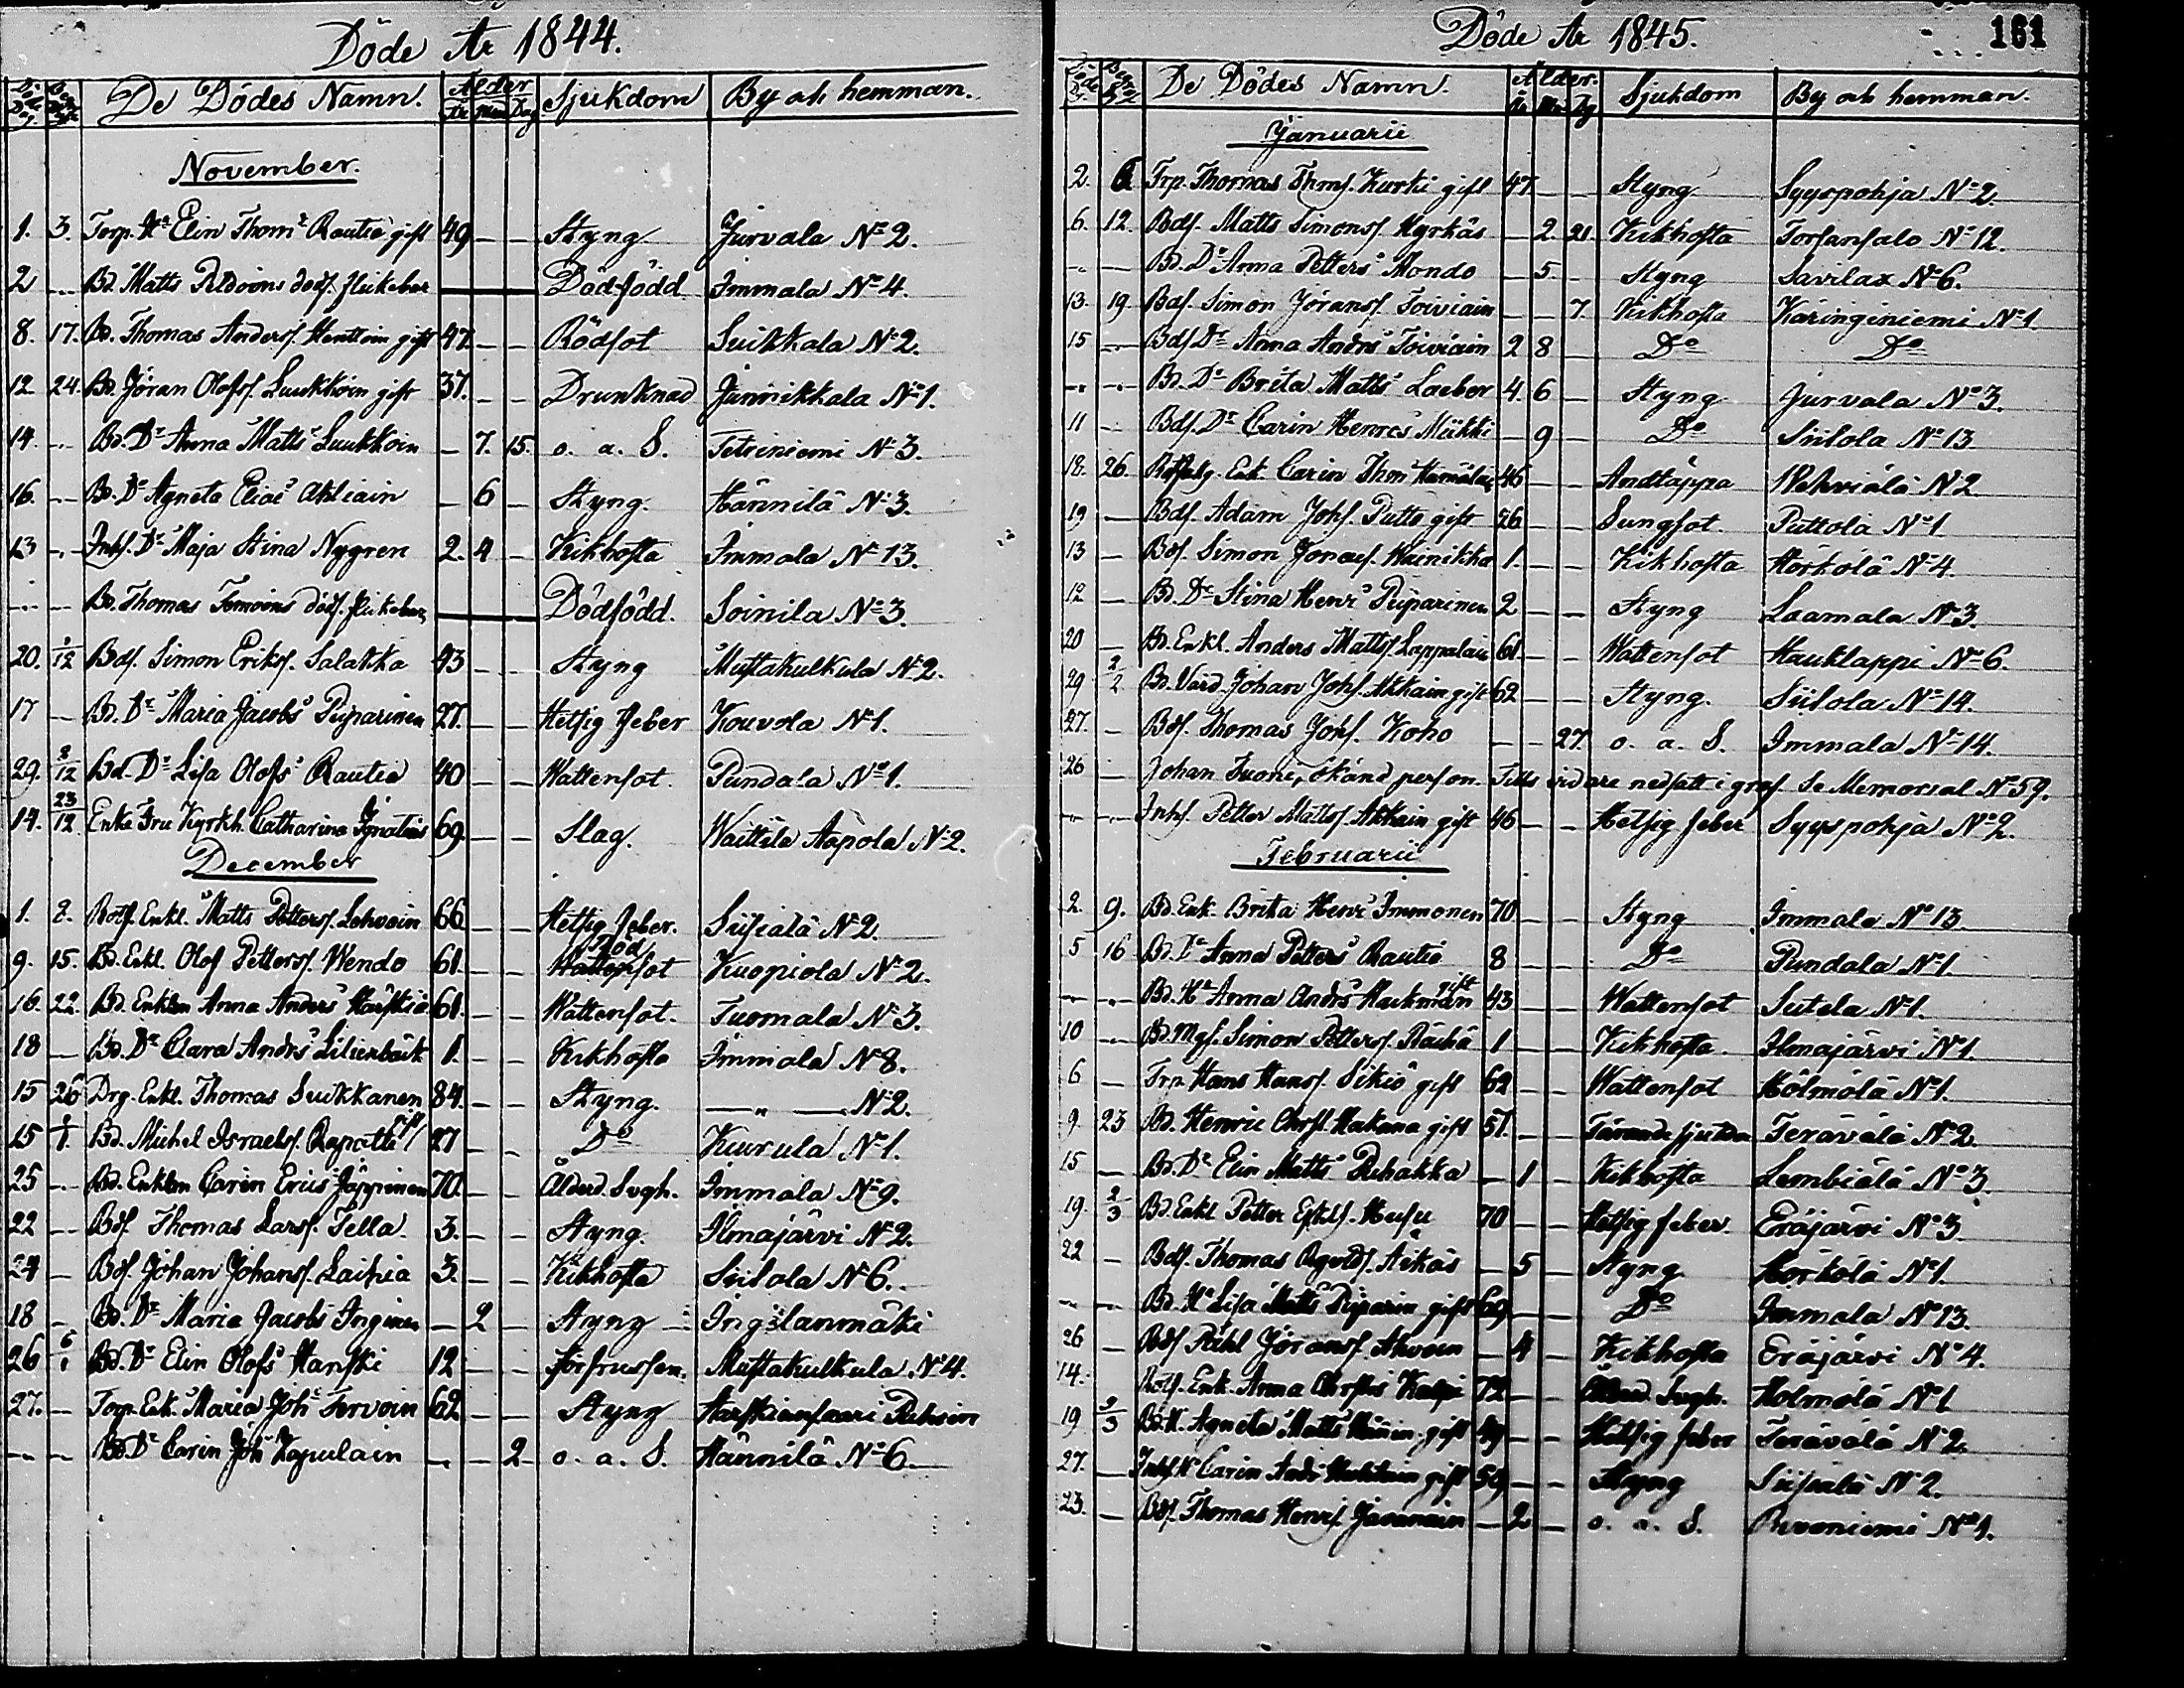 Döde År 1844.
Död Dag Begr. Dag De Dödes Namn. Ålder År Mån Dag Sjukdom By och hemman.
November.
1. 3. Torp. Ha Elin Thoms Rautio gift 49 — — Styng Jurvala No 2.
2 — Bd. Matts Peldoins dödf. flickebar — Dödfödd Immala No 4.
8. 17. Bd. Thomas Anders. Henttoin gift 47. — — Rödsot Suikkala No 2.
12 24. Bd. Jöran Olofs. Luukkoin gift 37. — — Drunknad Junnikkala No 1.
14. — Bd. Dr Anna Matts Luukkoin — 7. 15. o. a. S. Tetriniemi No 3.
16. — Bd. Dr Agneta Elias Ahliain — 6 — Styng. Hännilä No 3.
13 — Inhs. Dr Maja Stina Nygren 2. 4 — Kikhosta Immala No 13.
— — Bd. Thomas Tomoins dödf. flickebar — Dödfödd. Soinila No 3.
20. 1/12 Bds. Simon Eriks. Salakka 43 — — Styng Mustakulkula No 2.
17 — Bd. Dr Maria Jacobs Piiparinen 27. — — Hetsig feber Kouvola No 1.
29. 8/12 Bd. Dr Lisa Olofs Rautio 40 — — Wattensot. Pundala No 1.
14. 23/12 Enke Fru Kyrkh. Catharina Ignatius 69. — — Slag. Waittila Aapola No 2.
December
1. 8. Rotf. Enkl. Matts Petters. Lehvoin 66 — — Hetsig feber. Siisialä No 2.
9. 15. Bd. Enkl. Olof Petters. Wendo 61. — — Röd Wattensot Kuopiola No 2.
16. 22. Bd. Enkan Anna Anders Harskia 61. — — Wattensot. Tuomala No 3.
18 — Bd. Dr Clara Andrs Lilienbäck 1. — — Kikhosta Immala No 8.
15 26 Drg. Enkl. Thomas Suikkanen 84. — — Styng. — „ — No 2.
15 1/1 Bd. Michel Israels. Rapatti gift 27 — — Do Kuurula No 1.
25 — Bd. Enkan Carin Erics Jäppinen 70. — — Ålderd. Svgh. Immala No 9.
22 — Bds. Thomas Lars. Tella. 3. — — Styng. Ilmajärvi No 2.
24 — Bds. Johan Johans. Laihia 3. — — Kikhosta Siitola No 6.
18 — Bd. Dr Maria Jacobs Inginen — 2 — Styng Ingilänmäki
26 6/1 Bd. Dr Elin Olofs Hanski 12 — — förfrusen. Mustakulkula No 4.
27. — Torp. Enk. Maria Johs Tervoin 62. — — Styng Harskiansaari
— — Bd. Dr Carin Joh Kapulain — — 2 o. a. S. Hännilä No 6.
Döde År 1845. 161
De Dödes Namn. Ålder. År Mån Dg Sjukdom By och hemman.
Januarii
2. 6 Trp. Thomas Thms. Kurki gift 47. — — Styng Syyspohja No 2.
6. 12. Bds. Matts Simons. Hyrkäs — 2. 21. Kikhosta Torsansalo No 12.
— — Bd. Dr Anna Petters Mondo — 5. — Styng Savilax No 6.
13. 19. Bds. Simon Jörans. Toiviain — — 7. Kikhosta Käringiniemi No 1.
15 — Bds. Dr Anna Andrs Toiviain 2 8 — Do Do
— — Bd. Dr Brita Matts Laeber 4. 6 — Styng Jurvala No 3.
11 — Bds. Dr Carin Henrcs Mükki — 9 — Do Siitola No 13
18. 26. Enk. Carin Thms Hämäläin 46 — — Andtäppa Wehviälä N 2
19 — Bds. Adam Johs. Putto gift 26 — — Lungsot. Puttola No 1
13 — Bds. Simon Jonas. Wainikka 1. — — Kikhosta Hörkölä No 4.
12 — Bd. Dr Stina Henrs Piiparinen 2 — — Styng Laamala No 3.
20 — Bd. Enkl. Anders Matts. Lappalain 61. — — Wattensot Hauklappi No 6.
29 2/2 Bd. Värd. Johan Johs. Akkain gift 62 — — Styng. Siitola No 14.
27. — Bds. Thomas Johs. Koho — — 27. o. a. S. Immala No 14.
26 — Johan Tuoni, okänd person. Tills vidare nedsatt i graf. Se Memorial No 59.
— — Inhs. Petter Matts. Akkain gift 46 — — Hetsig feber Syyspohja No 2.
Februarii
2. 9. Bd. Enk. Brita Henrs Immonen 70 — — Styng Immala No 13.
5 16 Bd. Dr Anna Petters Rautio 8 — — Do Pundala No 1.
— — Bd. Ha Anna Andrs Hackman gift 43 — — Wattensot Sutela No 1.
10 — Bd. Mgs. Simon Petters. Rächä 1 — — Kikhosta Ilmajärvi No 1.
6 — Trp. Hans Hans. Sikiö gift 62 — — Wattensot Hölmölä No 1.
9. 23 Bd. Henric Chrst. Hakana gift 51. — — Tärande sjukdom Terävälä No 2.
15 — Bd. Dr Elin Matts Rehakka — 1 — Kikhosta Lembiälä No 3.
19. 2/3 Bd. Enkl. Petter Eskils. Husu 70 — — Hetsig feber. Eräjärvi No 3
22 — Bds. Thomas Äikäs — 5 — Styng Hörkölä No 1.
— — Bd. Ha Lisa Matts Piiparin gift 69 — — Do Immala No 13.
26 — Bds. Jörans. Ahvoin — 4 — Kikhosta Eräjärvi No 4.
14. Rotf. Enk. Anna Kalpi 72 — — Ålderd. Svgh. Holmölä No 1
19 9/3 Bd. H. Agneta Matts gift 49 — — Hetsig feber Terävälä No 2.
27. — Inhs. Ha Carin Andrs gift 59 — — Styng Siisialä No 2.
23. — Bds. Thomas Henrs. Javanain — 2 — o. a. S. No 1.